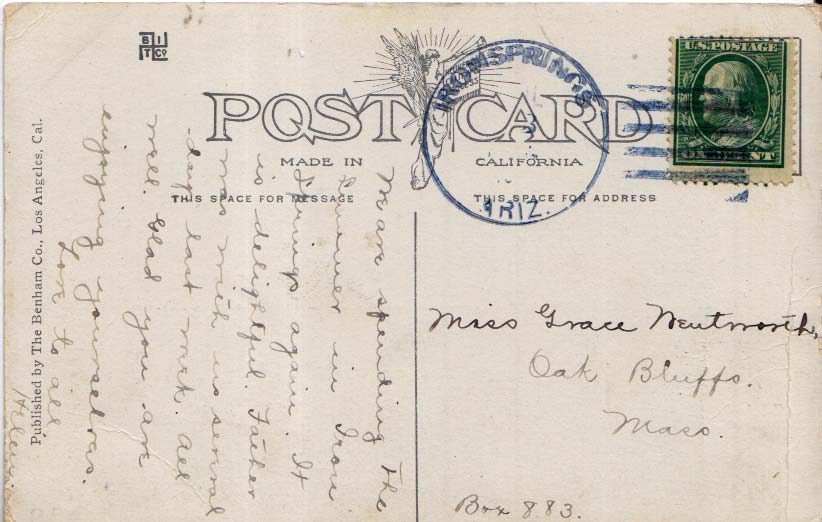 B I
T Co
POST CARD
MADE IN CALIFORNIA
THIS SPACE FOR MESSAGE
THIS SPACE FOR ADDRESS
U.S. POSTAGE
ONE CENT
IRON SPRINGS
ARIZ.
Published by The Benham Co., Los Angeles, Cal.
We are spending the
summer in Iron
Springs again. It
is delightful. Father
was with us several
days last week. All
well. Glad you are
enjoying yourselves.
Love to all
Miss Grace Wentworth,
Oak Bluffs.
Mass.
Box 883.